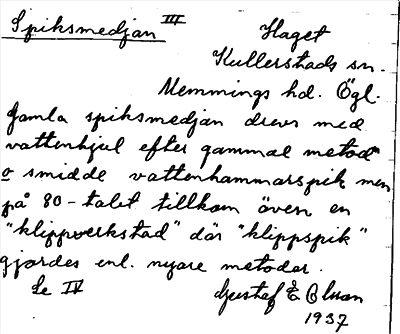 Spiksmedjan III
Haget
Kullerstads sn.
Memmings hd. Ögl.
Gamla spiksmedjan drevs med
vattenhjul efter gammal metod
o smidde vattenhammarspik men
på 80-talet tillkom även en
"klippverkstad" där "klippspik"
gjordes enl. nyare metoder.
Se IV
Gustaf E
1937